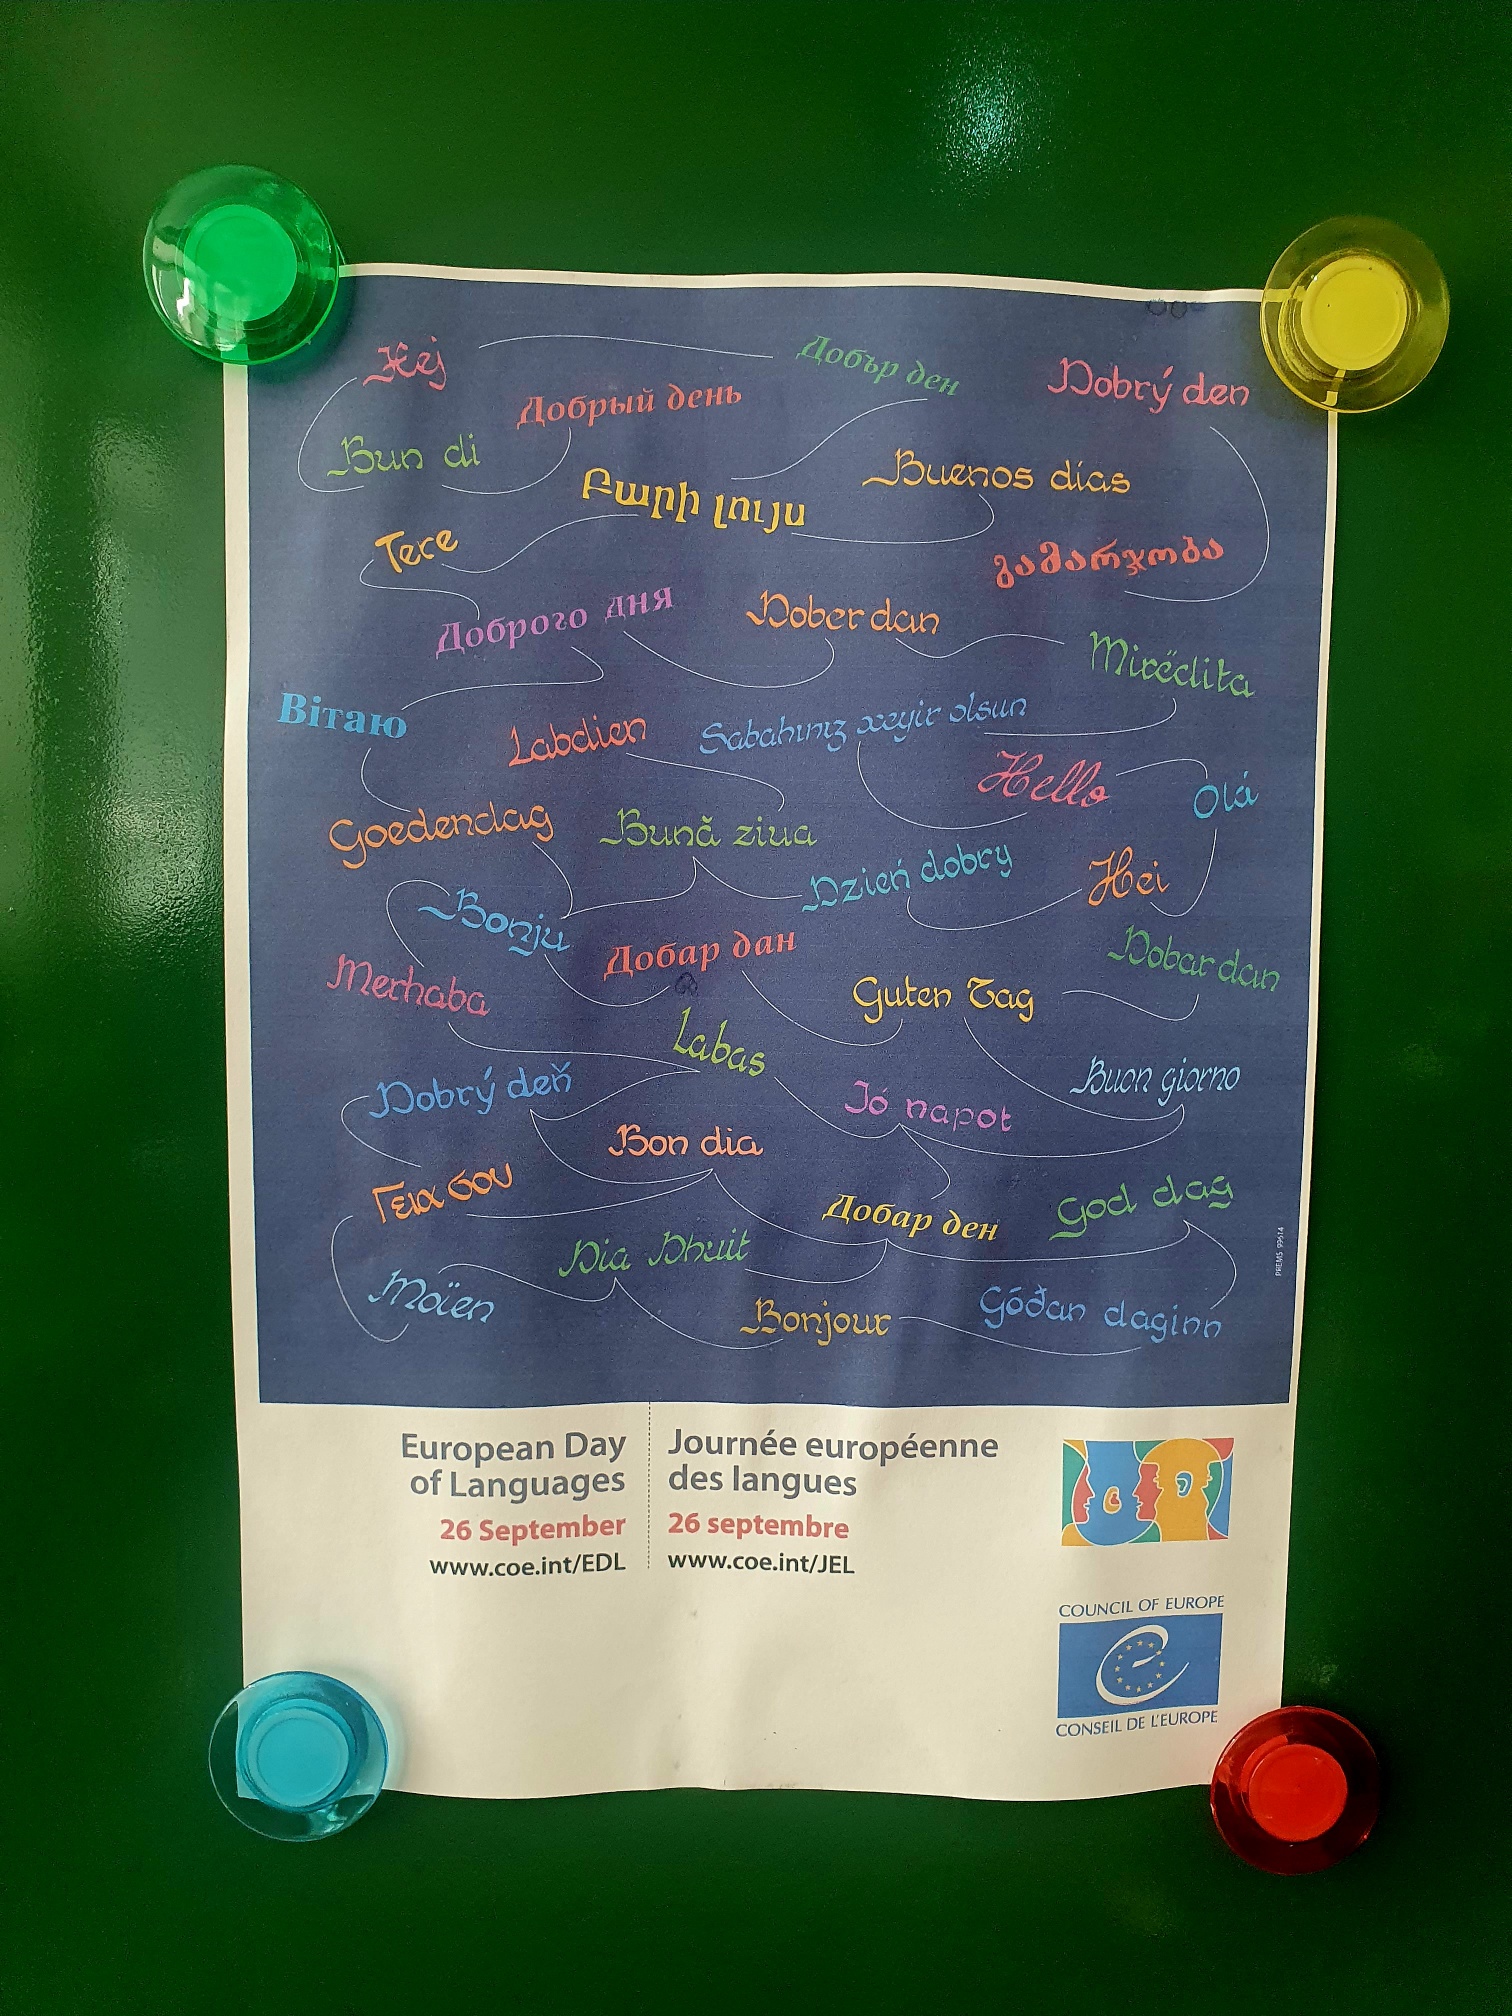 Hej
Добър ден
Dobrý den
Добрый день
Bun di
Buenos días
Բարի լույս
Tere
გამარჯობა
Доброго дня
Dober dan
Mirëdita
Вітаю
Labdien
Sabahınız xeyir olsun
Hello
Olá
Goedendag
Bună ziua
Dzień dobry
Hei
Bonju
Добар дан
Dobar dan
Merhaba
Guten Tag
Labas
Dobrý deň
Buon giorno
Jó napot
Bon dia
Γεια σου
Добар ден
God dag
Dia Dhuit
Moïen
Bonjour
Góðan daginn
PREMS 99614
European Day
of Languages
26 September
www.coe.int/EDL
Journée européenne
des langues
26 septembre
www.coe.int/JEL
COUNCIL OF EUROPE
CONSEIL DE L'EUROPE